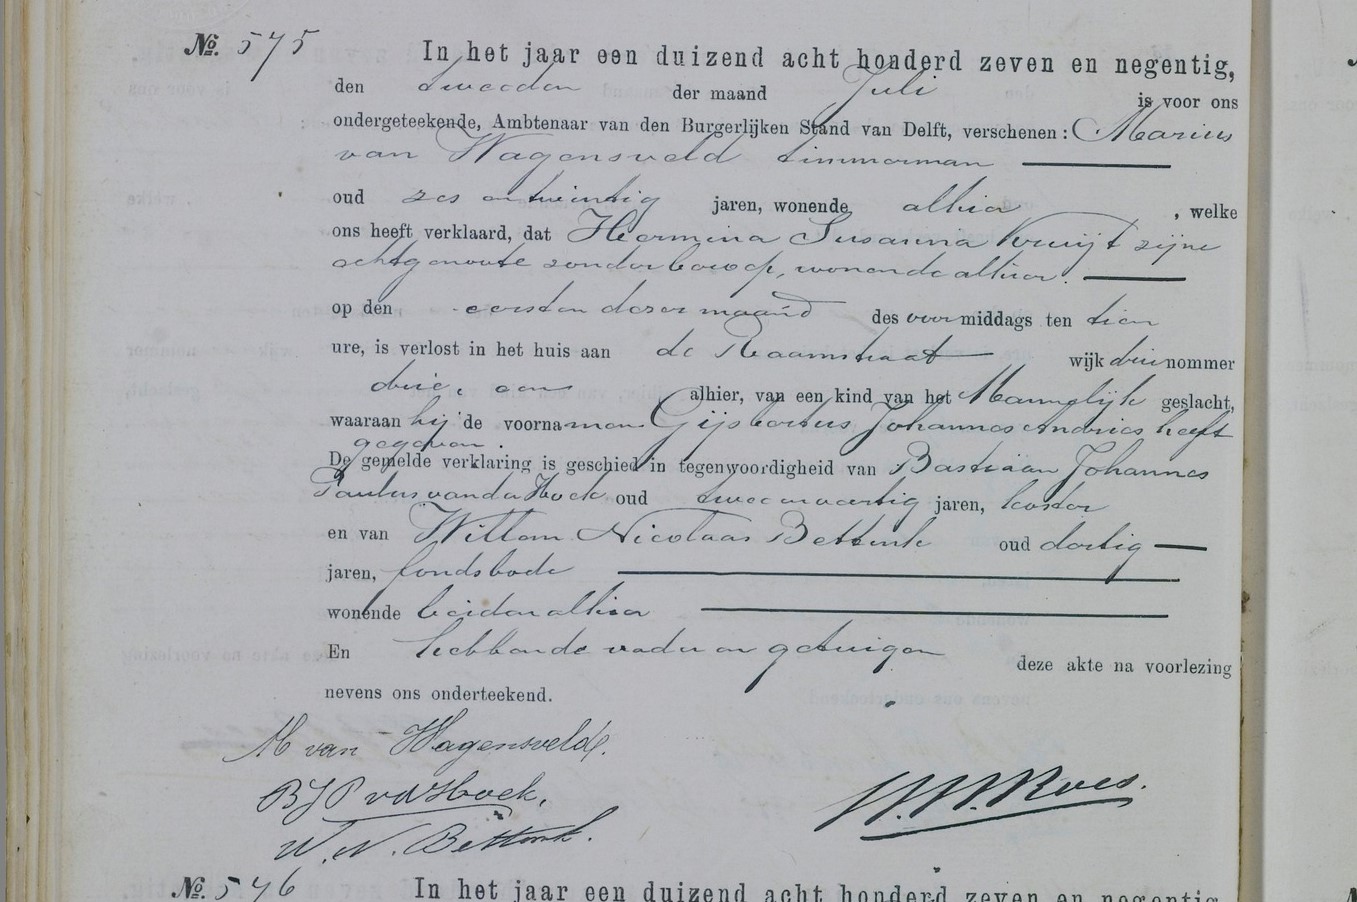 No. 575 In het jaar een duizend acht honderd zeven en negentig,
den tweeden der maand Juli is voor ons
ondergeteekende, Ambtenaar van den Burgerlijken Stand van Delft, verschenen: Marius
van Wagensveld timmerman
oud zes en twintig jaren, wonende alhier, welke
ons heeft verklaard, dat Hermina Susanna Verwijt zijne
echtgenoote zonder beroep, wonende alhier.
op den eersten dezer maand des voormiddags ten tien
ure, is verlost in het huis aan de Raamstraat wijk drie nommer
drie, eene alhier, van een kind van het Mannelijk geslacht,
waaraan hij de voornamen Gijsbertus Johannes Andries heeft
gegeven.
De gemelde verklaring is geschied in tegenwoordigheid van Bastiaan Johannes
Paulus van der Hoek oud twee en veertig jaren, koster
en van Willem Nicolaas Bettink oud dertig
jaren, fondsbode
wonende beiden alhier
En hebbende vader en getuigen deze akte na voorlezing
nevens ons onderteekend.
M van Wagensveld.
BJP vd Hoek,
W. N. Bettink.
No. 576 In het jaar een duizend acht honderd zeven en negentig